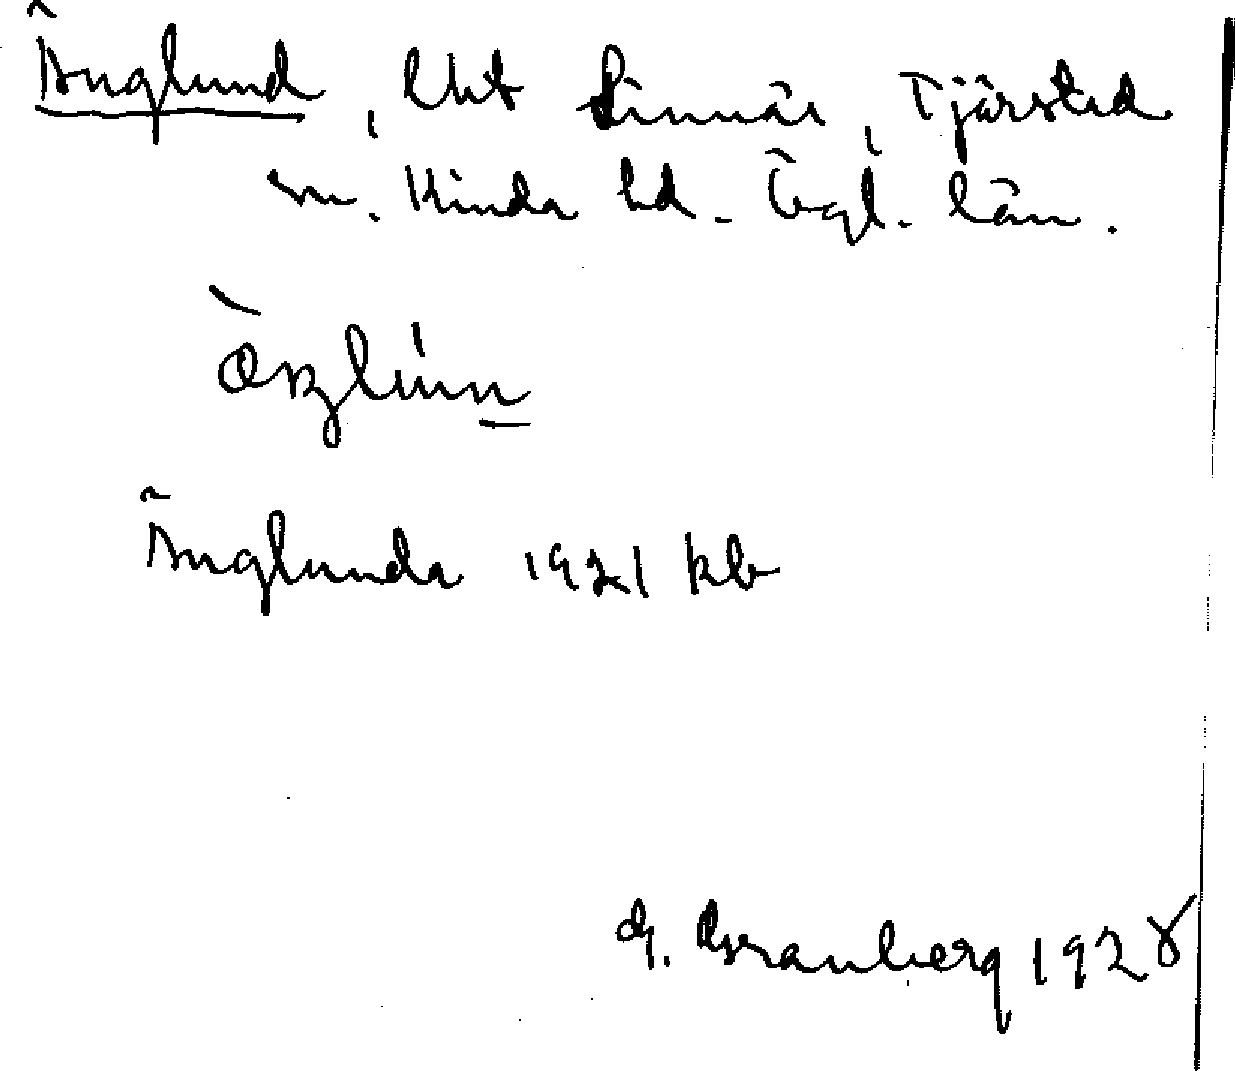 Änglund, lht Linnäs, Tjärstad
sn. Kinda hd. Ögl. län.
Änglunda 1921 kb
G. Granberg 1928